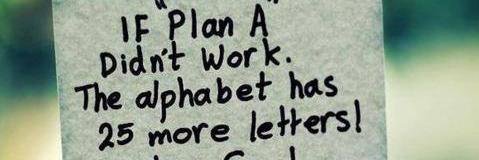 IF "Plan A"
Didn't Work.
The alphabet has
25 more letters!